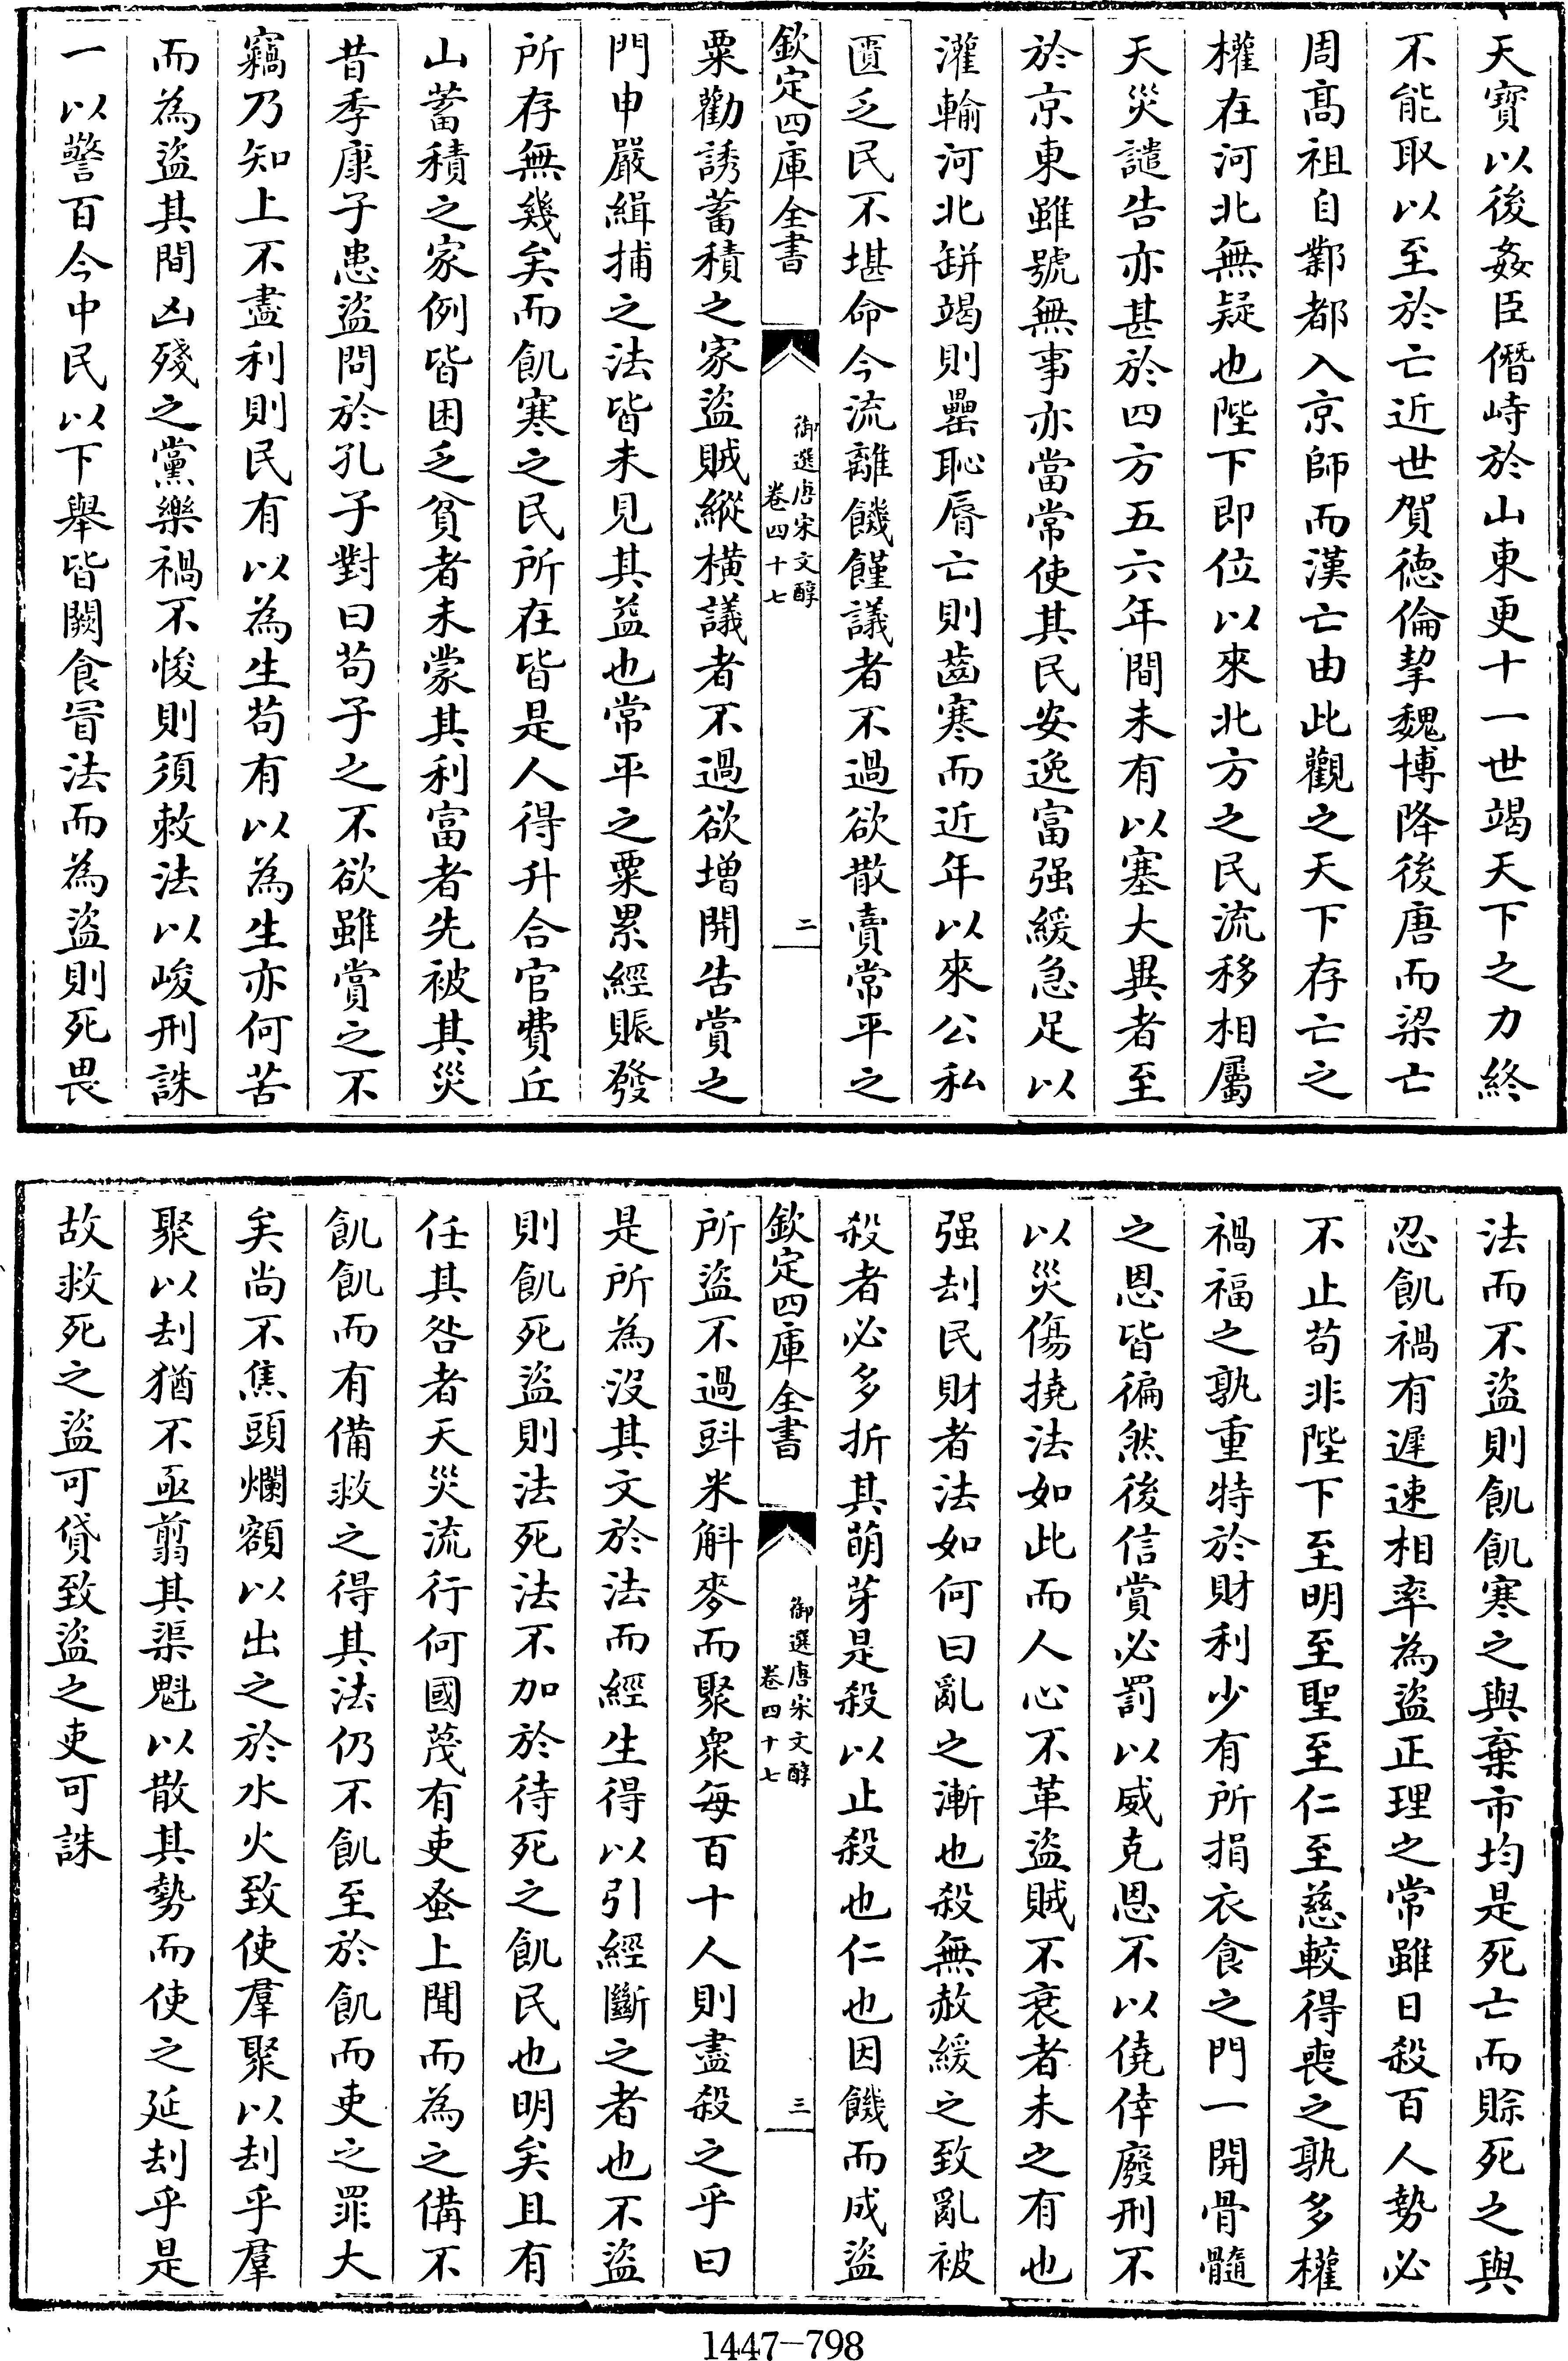 天寶以後姦臣僭峙於山東更十一世竭天下之力終
不能取以至於亡近世賀德倫挈魏博降後唐而梁亡
周高祖自鄴都入京師而漢亡由此觀之天下存亡之
權在河北無疑也陛下即位以來北方之民流移相屬
天災譴告亦甚於四方五六年間未有以塞大異者至
於京東雖號無事亦當常使其民安逸富强緩急足以
灌輸河北缾竭則罍恥脣亡則齒寒而近年以來公私
匱乏民不堪命今流離饑饉議者不過欲散賣常平之
欽定四庫全書
御選唐宋文醇
卷四十七
二
粟勸誘蓄積之家盜賊縱橫議者不過欲增開告賞之
門申嚴緝捕之法皆未見其益也常平之粟累經賑發
所存無幾矣而飢寒之民所在皆是人得升合官費丘
山蓄積之家例皆困乏貧者未蒙其利富者先被其災
昔季康子患盜問於孔子對曰苟子之不欲雖賞之不
竊乃知上不盡利則民有以為生苟有以為生亦何苦
而為盜其間凶殘之黨樂禍不悛則須敕法以峻刑誅
一以警百今中民以下舉皆闕食冒法而為盜則死畏
法而不盜則飢飢寒之與棄市均是死亡而賒死之與
忍飢禍有遲速相率為盜正理之常雖日殺百人勢必
不止苟非陛下至明至聖至仁至慈較得喪之孰多權
禍福之孰重特於財利少有所捐衣食之門一開骨髓
之恩皆徧然後信賞必罰以威克恩不以僥倖廢刑不
以災傷撓法如此而人心不革盜賊不衰者未之有也
强刦民財者法如何曰亂之漸也殺無赦緩之致亂被
殺者必多折其萌芽是殺以止殺也仁也因饑而成盜
欽定四庫全書
御選唐宋文醇
卷四十七
三
所盜不過㪷米斛麥而聚衆每百十人則盡殺之乎曰
是所為沒其文於法而經生得以引經斷之者也不盜
則飢死盜則法死法不加於待死之飢民也明矣且有
任其咎者天災流行何國蔑有吏蚤上聞而為之備不
飢飢而有備救之得其法仍不飢至於飢而吏之罪大
矣尚不焦頭爛額以出之於水火致使羣聚以刦乎羣
聚以刦猶不亟翦其渠魁以散其勢而使之延刦乎是
故救死之盜可貸致盜之吏可誅
1447-798